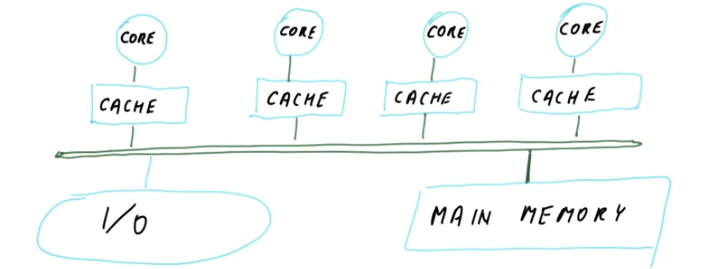 CORE CORE CORE CORE
CACHE CACHE CACHE CACHE
I/O MAIN MEMORY